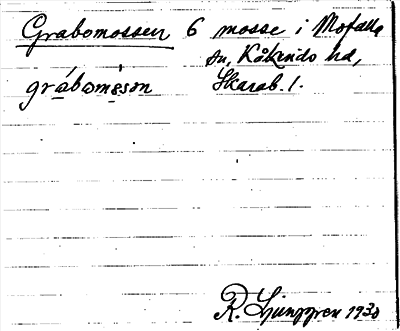 Grabomossen 6 mosse i Mofalla
sn, Kåkinds hd,
gràbomǿsən Skarab. l.
R. Ljunggren 1930